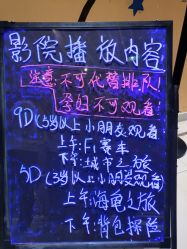 影院播放内容
注意:不可代替排队!
孕妇不可观看!
9D(3岁以上小朋友观看)
上午:F1赛车
下午:城市之旅
5D(3岁以上小朋友观看)
上午:海龟之旅
下午:背包探险